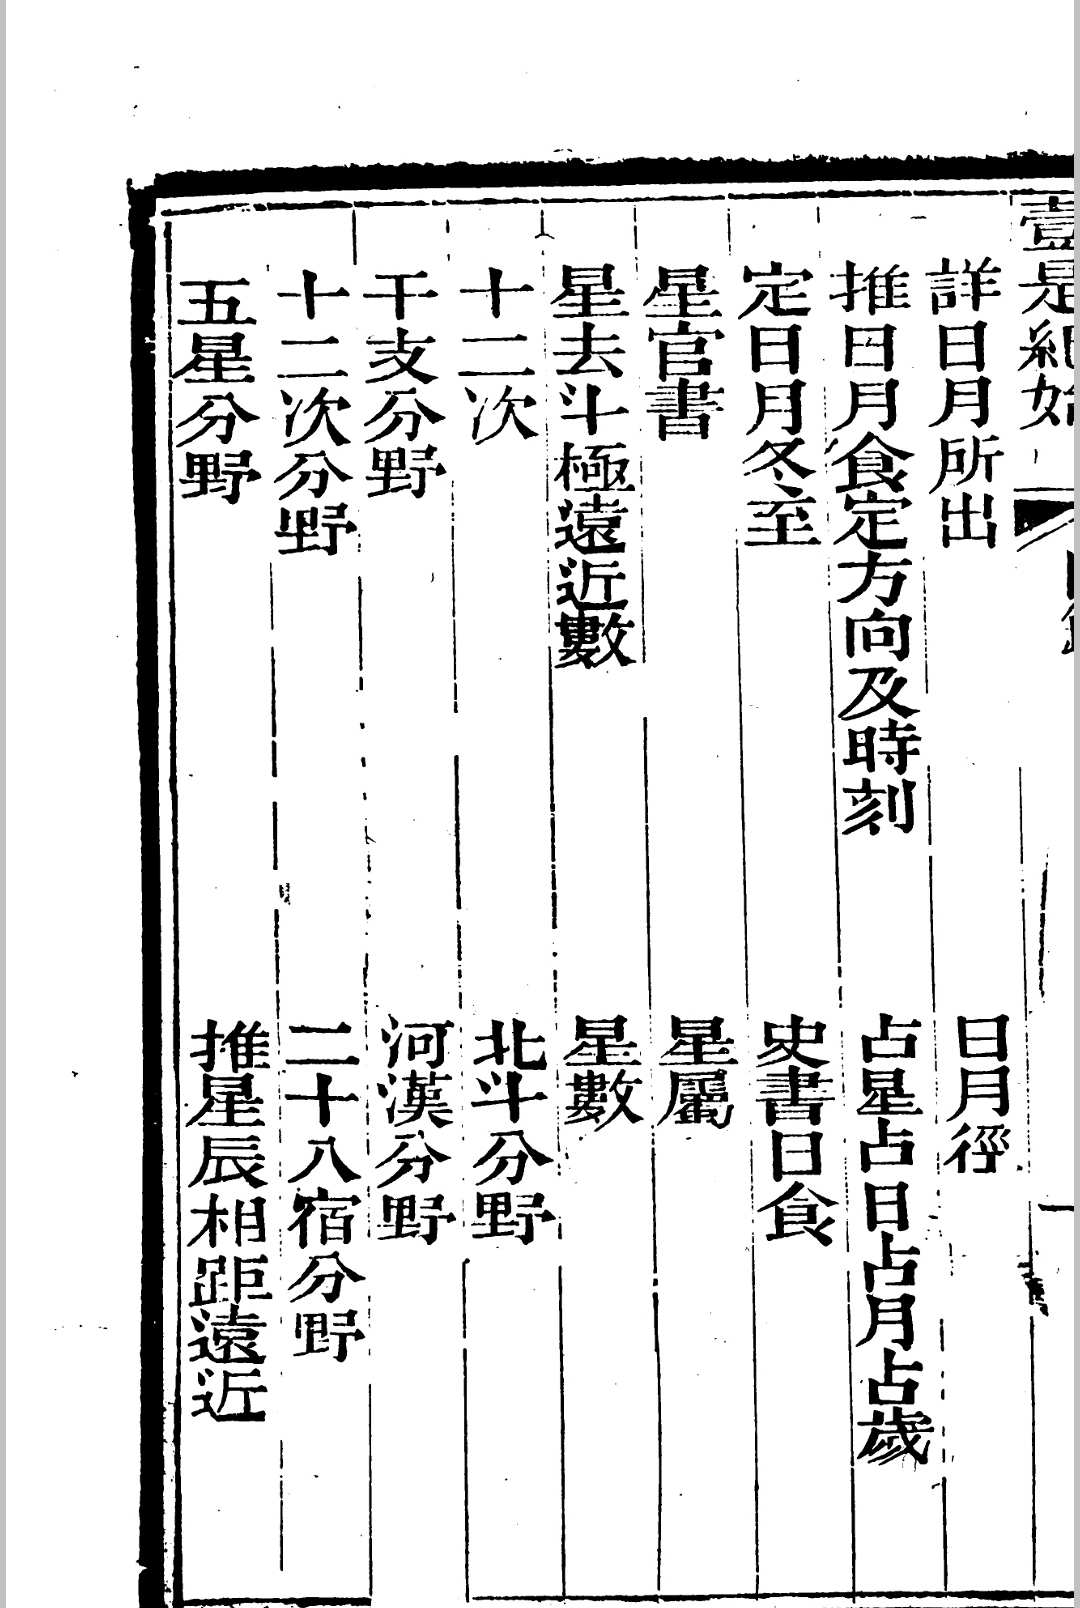 壹是紀始
一
詳日月所出　日月徑
推日月食定方向及時刻　占星占日占月占歲
定日月冬至　史書日食
星官書　星屬
星去斗極遠近數　星數
十二次　北斗分野
干支分野　河漢分野
十二次分野　二十八宿分野
五星分野　推星辰相距遠近